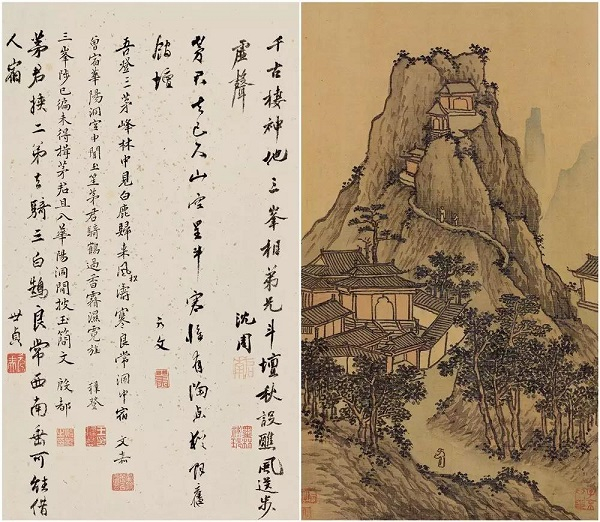 千古棲神地三峯相弟兄斗壇秋設醮風送步
虛聲 沈周
去已久山空星斗寒惟有陶
壇
吾登三茅峰林中見白鹿歸來風松濤寒良常洞中宿 文嘉
曾宿華陽洞空中聞玉笙茅君騎鶴過香霧濕霓旌 穉登
三峯陟已徧未得揖茅君且入華陽洞閒披玉簡文 殷都
茅君挾二弟去騎三白鵠良常西南垂可能借
人宿 世貞